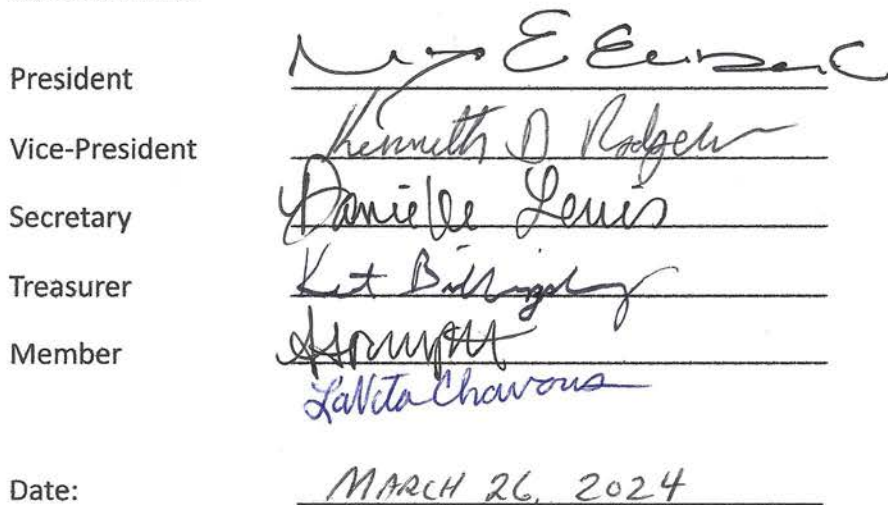 President E
Vice-President Kenneth D Rodgers
Secretary Danielle Lewis
Treasurer Billingsley
Member
LaVita Chavous
Date: MARCH 26, 2024